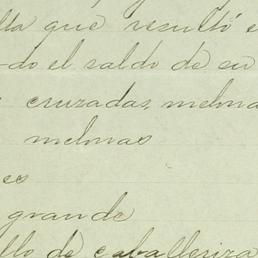 lla que resultó e
do el saldo de su
cruzadas, melona
melonas
es
grande
llo de caballeriza